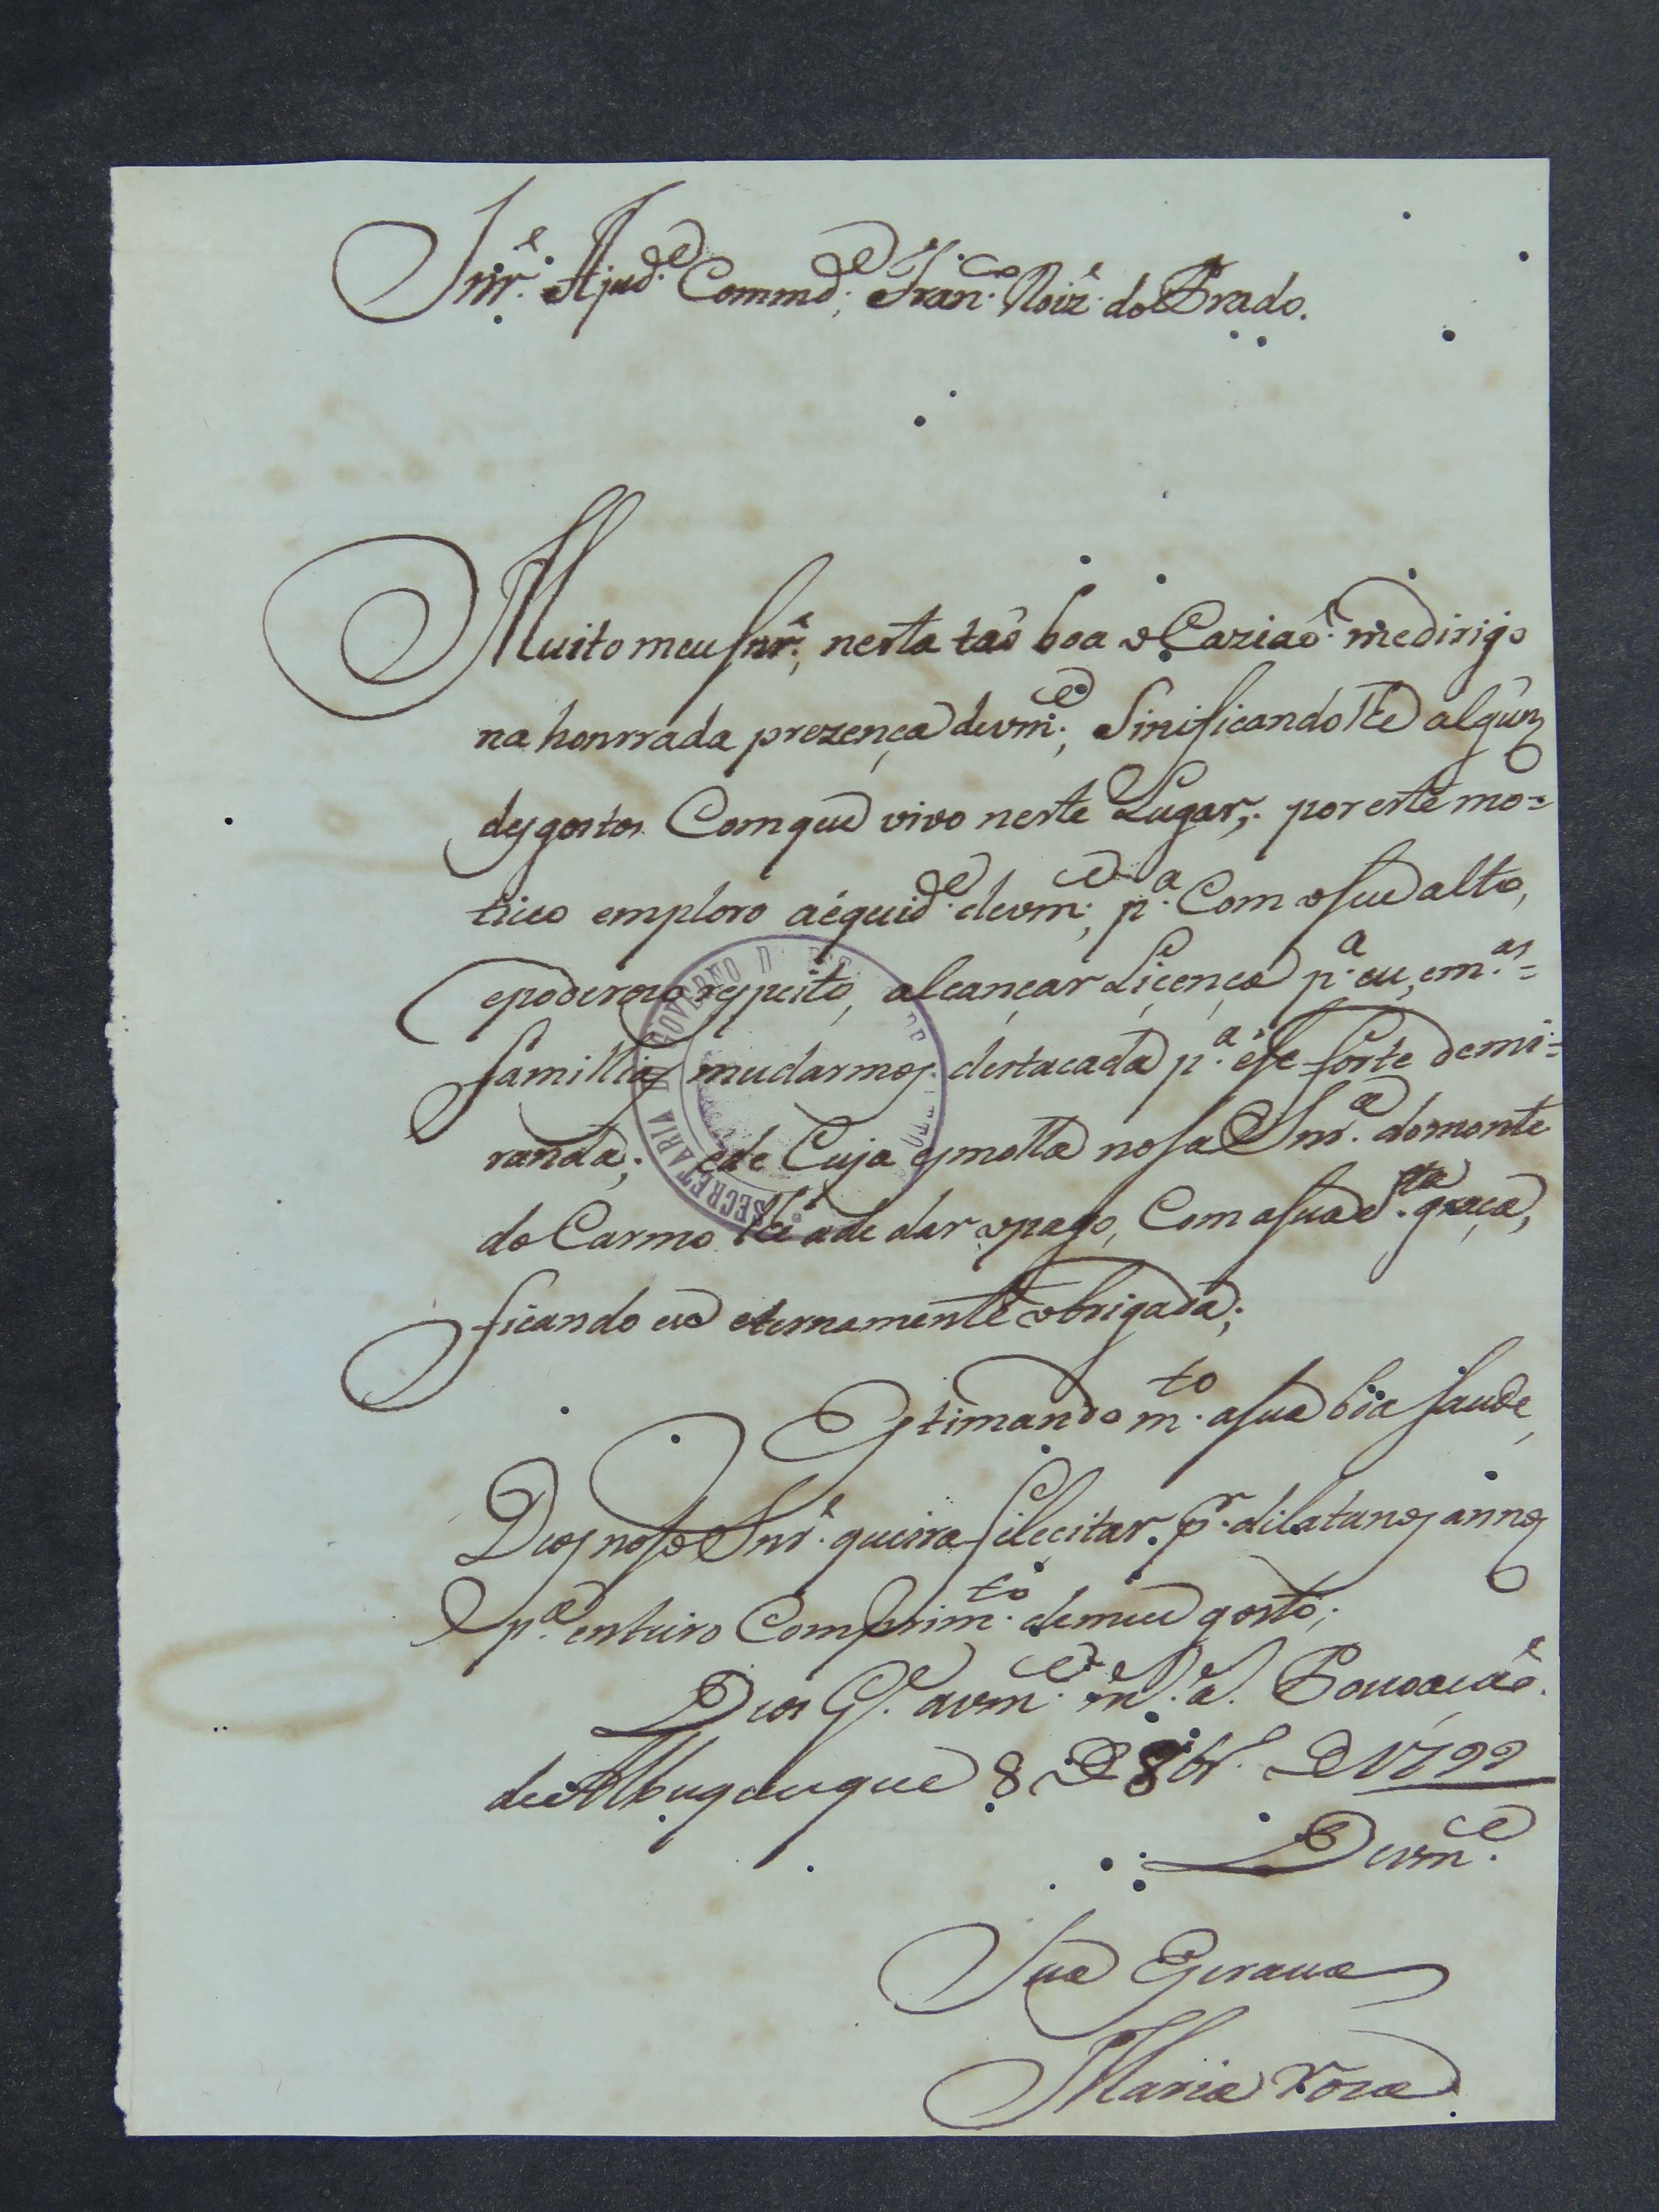 Snr.e Ajud.e Commd.e Fran.co Roiz' do Prado.
Muito meu Snr.e, nesta taõ boa oCaziaõ. medirijo
na honrrada prezença devm.ce, Sinificandolhe algũns
desgostos Comque vivo neste Lugar,. por este mo=
tivo emploro aéquid.e devm.ce, p.a Com oseu alto,
epoderozo respeito, alcançar Liçença p.a eu, em.as=
famillias mudarmos destacada p.a ese forte demi=
randa; ede Cuja esmolla nosa Snr.a domonte
do Carmo lhe ade dar opago, Com asua S.ta graça,
ficando eu eternamente obrigada;
Estimando m.to asua boa saude,
Deos noso Snr.e queira felecitar. p.r dilatanos annos
E p.a enteiro Comprim.to demeu gosto;
Deos G.e avm.ce m.s a.s Povoaçaõ.
de Albuquerque 8 De 8br.o De 1799
Devm.ce
Sua Escrava
Maria roza
SECRETARIA D GOVERNO D